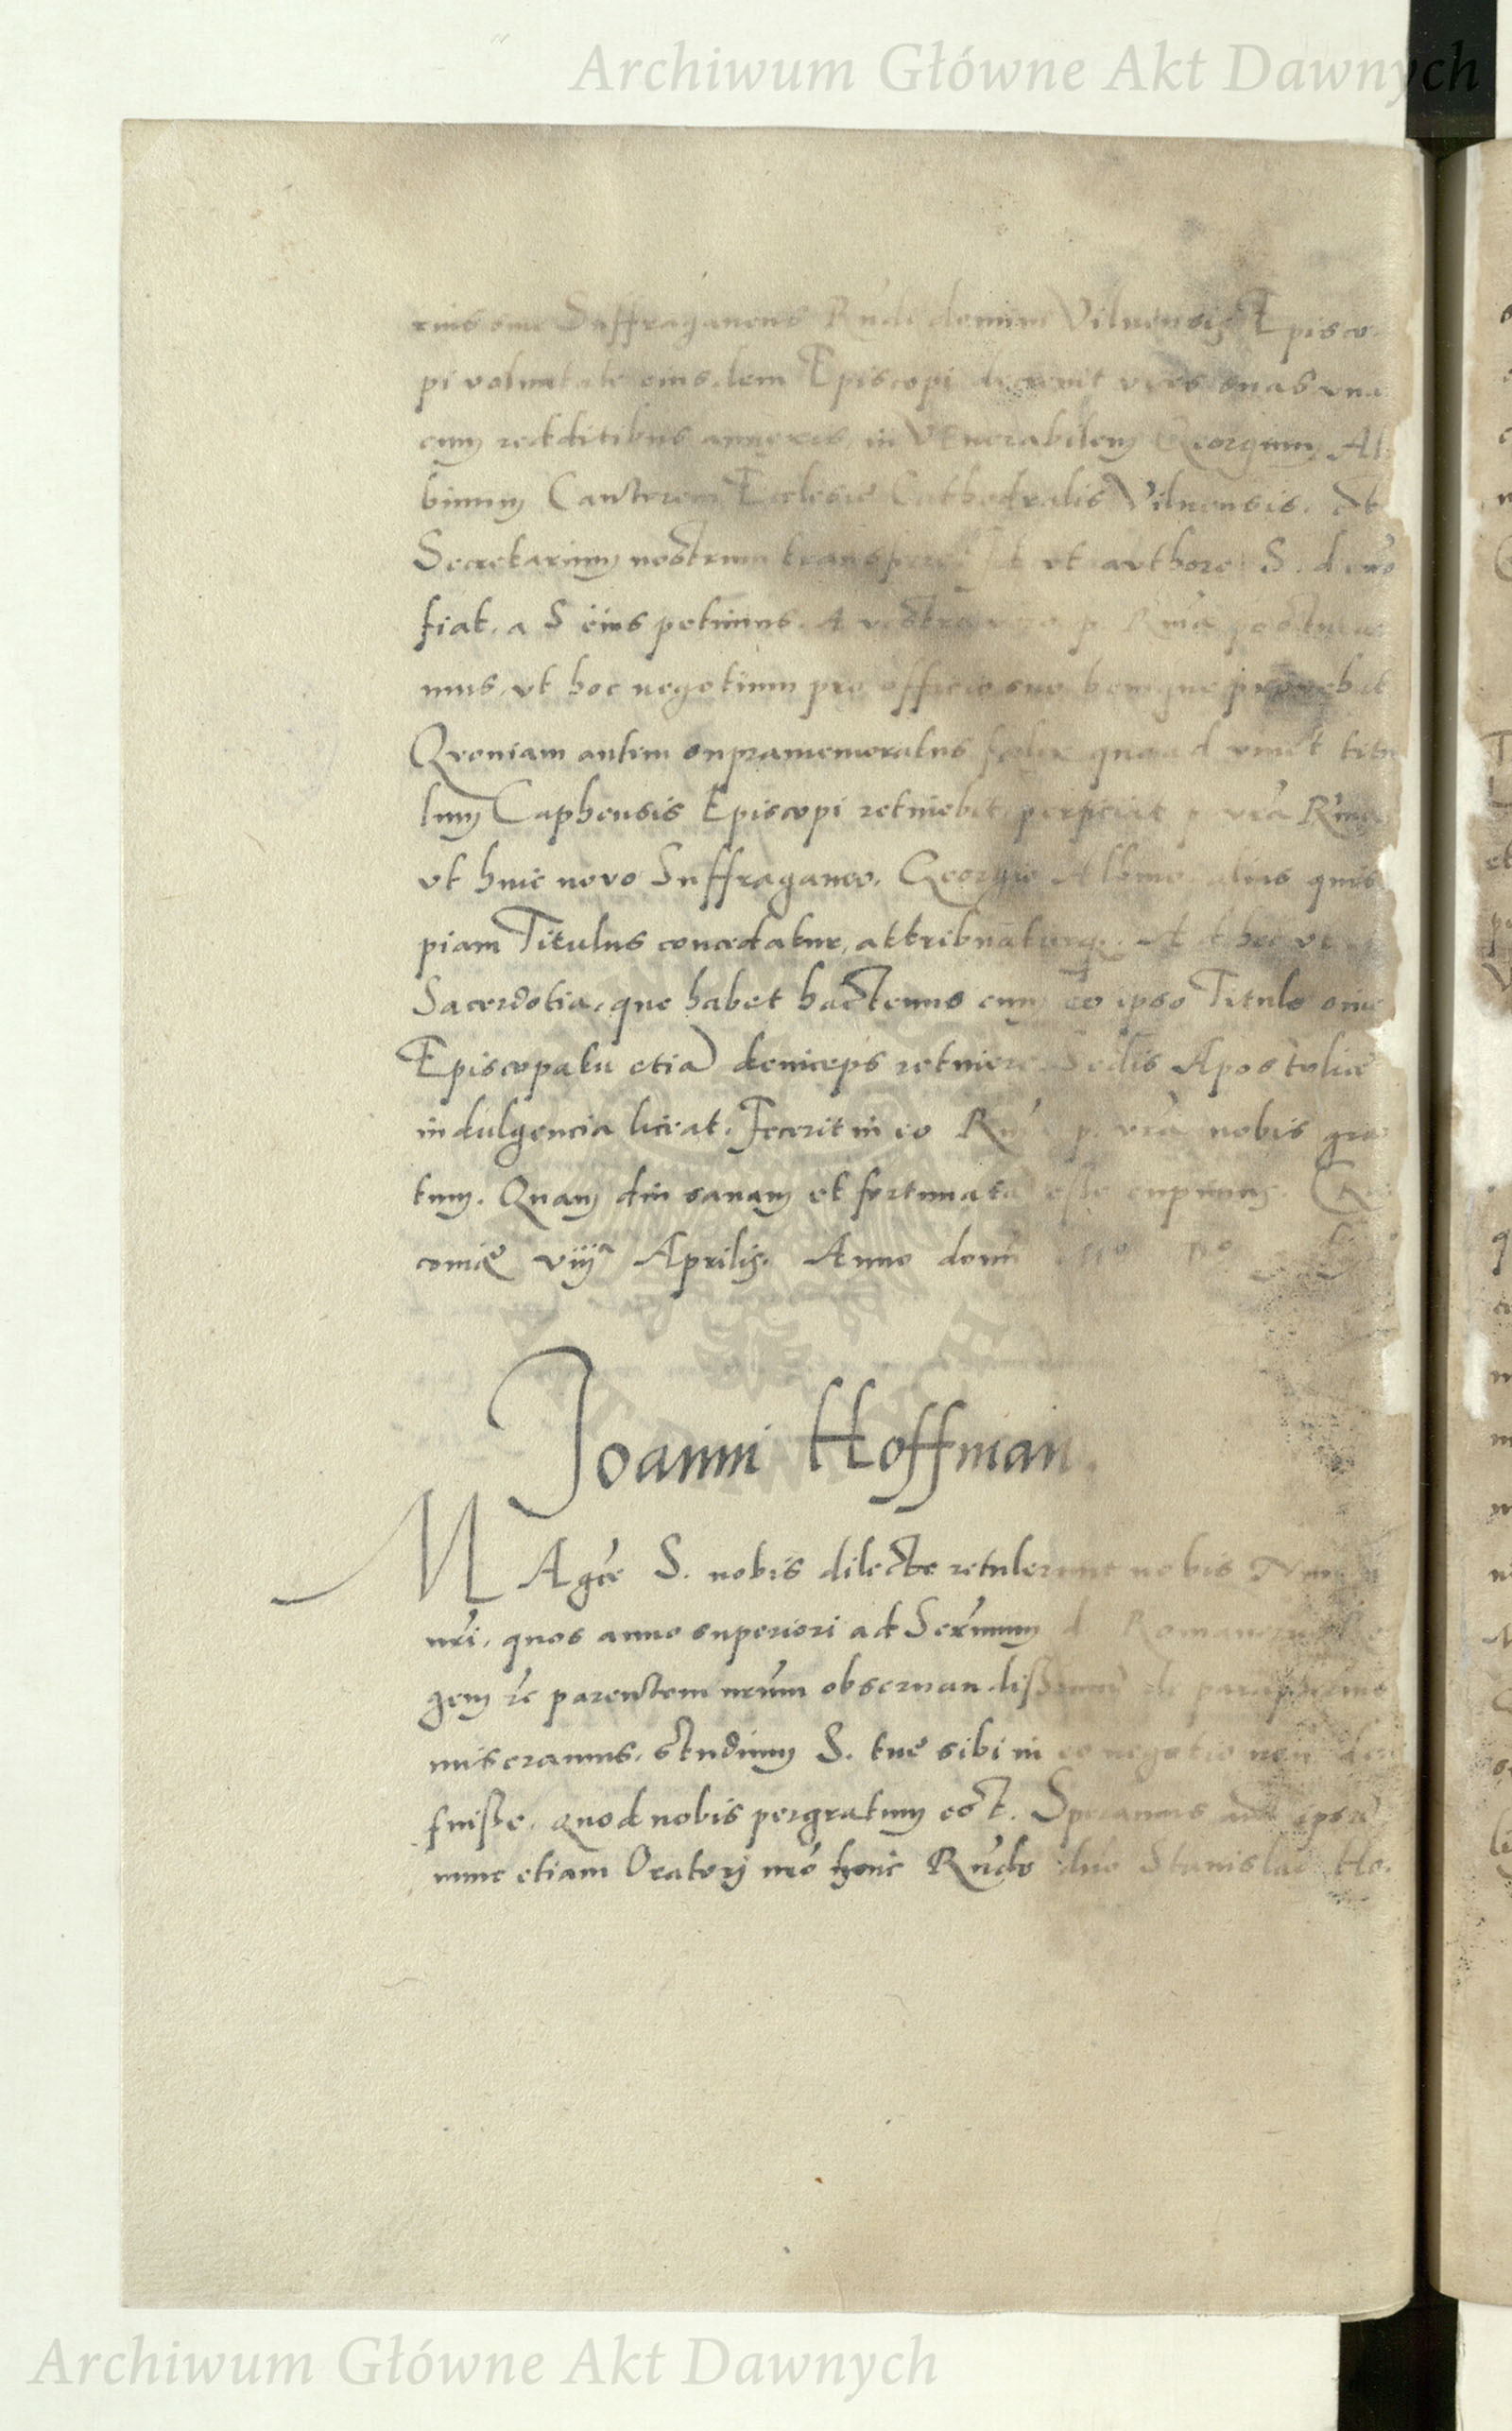 Archiwum Główne Akt Dawnych
Suffraganeus Rńdi domini Vilnensis Episco-
pi voluntate eiusdem Episcopi decrevit vices suas vna
cum redditibus annexis, in Venerabilem Georgium Al-
binum Cantorem Ecclesie Cathedralis Vilnensis, et
Secretarium nostrum ut authore S. d.
fiat, a S. eius petimus. A vestra vero p. Rma postula
mus, ut hoc negotium pro officio suo
Qvoniam autem supramemoratus quoad titu
lum Caphensis Episcopi retinebit, perficiat p. vra Rma
vt huic novo Suffraganeo, Georgio Albino alius quis
piam Titulus concedatur, attribuaturq.
Sacerdotia, que habet hactenus cum eo ipso Titulo sine
Episcopatu etiã deinceps retinere Sedis Apostolice
indulgencia liceat. Fecerit in eo Rma p. vra nobis gra
tum. Quam diu sanam et fortunatã esse cupimus. Cra
comie viij^a Aprilis. Anno domi
Joanni Hoffman.
MAgce S. nobis dilecte retulerunt nobis Nuncij
nri, quos anno superiori ad Sermum d. Romanorum Re
gem vt parentem nrum observandissimum
miseramus, studium S. tue sibi in eo negotio non
fuisse, quod nobis pergratum est. Speramus
nunc etiam Oratorj nro huic Rndo dno Stanislao Ho.
Archiwum Główne Akt Dawnych